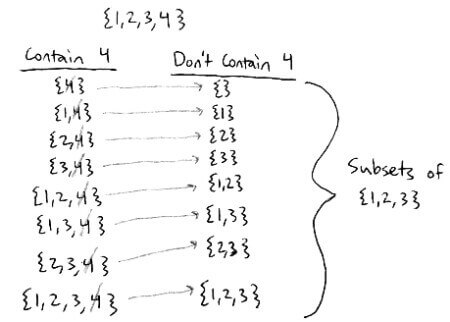 {1,2,3,4}
Contain 4 Don't Contain 4
{4} {}
{1,4} {1}
{2,4} {2}
{3,4} {3}
{1,2,4} {1,2}
{1,3,4} {1,3}
{2,3,4} {2,3}
{1,2,3,4} {1,2,3}
Subsets of
{1,2,3}